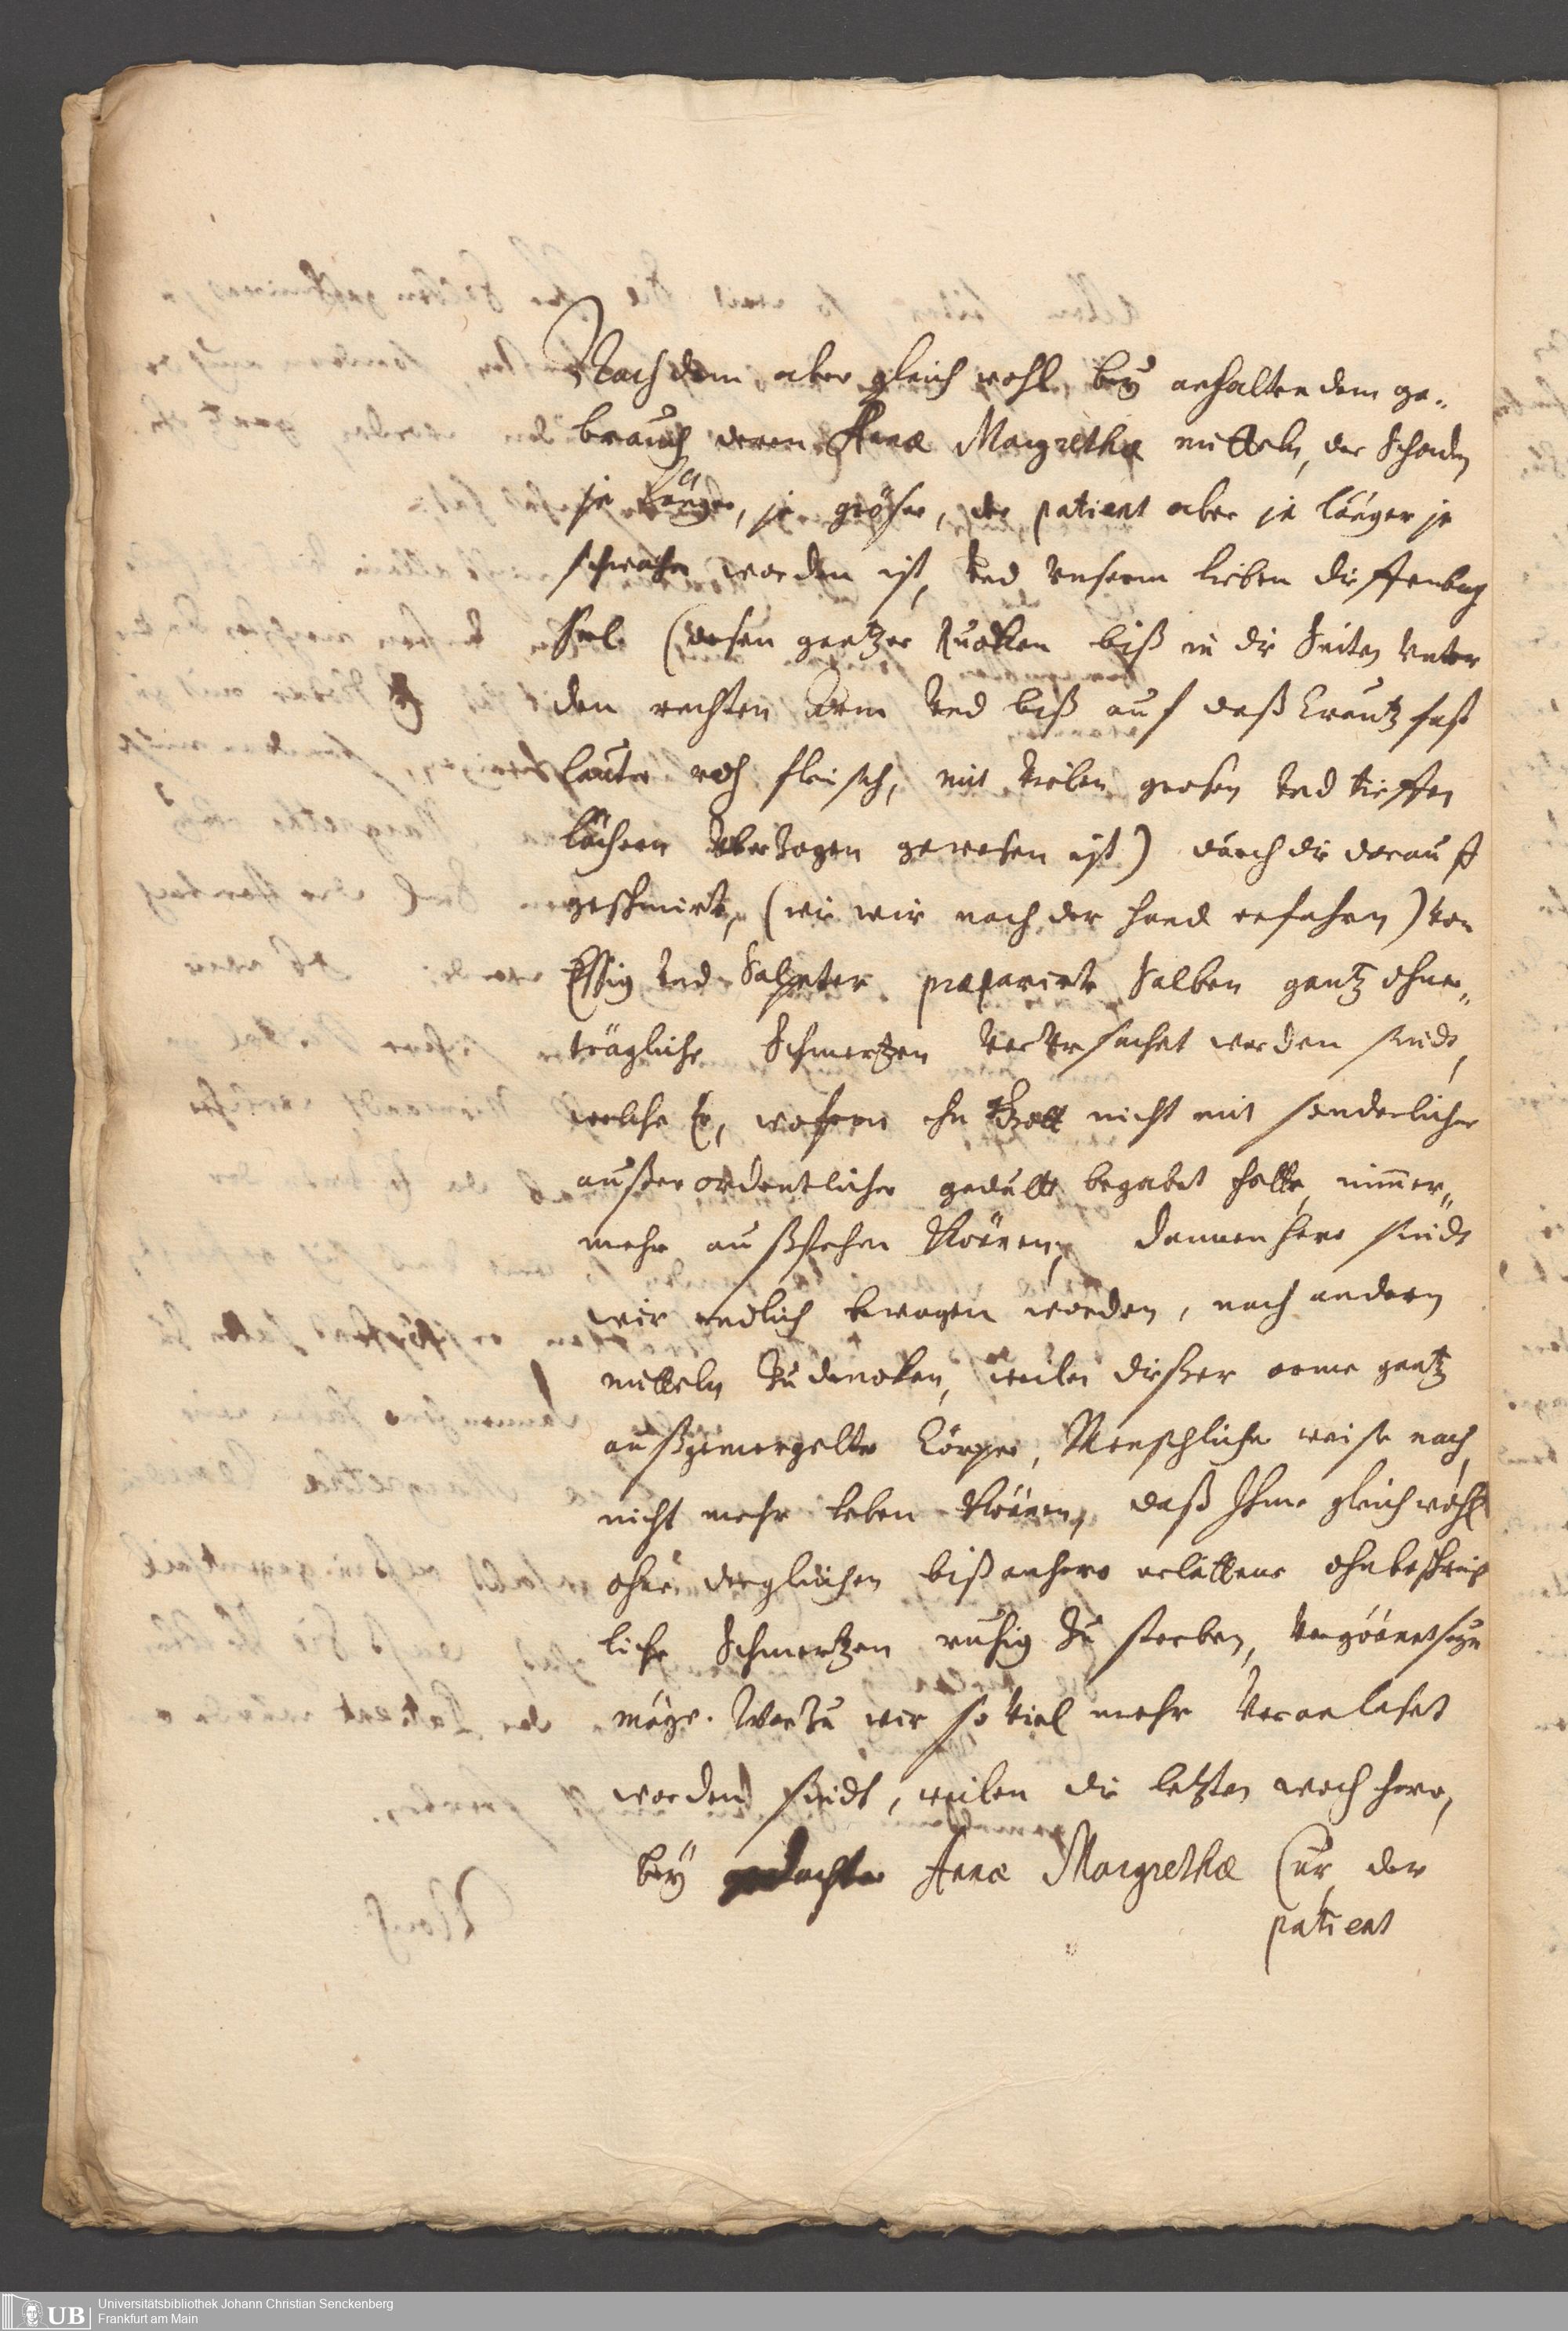 Nachdem aber gleich wohl, bey anhaltendem ge„
brauch deren Annæ Margrethæ mitteln, der Schaden
je länger, je gröser, der patient aber je länger je
schwächer worden ist, und unserm lieben Dieffenbach
Seel. (desen gantzer Rucken biß in die Seiten unter
den rechten Arm und biß auf daß Creutz fast
lauter roh fleisch, mit vielen grosen und tieffen
löchern uberzogen gewesen ist) durch die darauff
geschmirte, (wie wir nach der hand erfahren) von
Essig und Salpeter præparirte Salben gantz ohner„
trägliche Schmertzen verursachet worden sindt,
welche Er, wofern ihn Gott nicht mit sonderlicher
außerordentlicher gedullt begabet hette, nimmer„
mehr außstehen können, dannenhero sindt
wir endlich bewogen worden, nach andern
mitteln zu dencken, weilen dießer arme gantz
außgemergelte Cörper, Menschlicher weise nach,
nicht mehr leben können, daß Ihme gleichwohl
ohne dergleichen bißanhero erlittene ohnbeschreib
liche Schmertzen ruhig zu sterben, vergönnet seyn
möge. Worzu wir so viel mehr veranlaset
worden sindt, weilen die letzten woch hero,
bey gedachter Annæ Margrethæ Cur, der
patient
UB Universitätsbibliothek Johann Christian Senckenberg
Frankfurt am Main